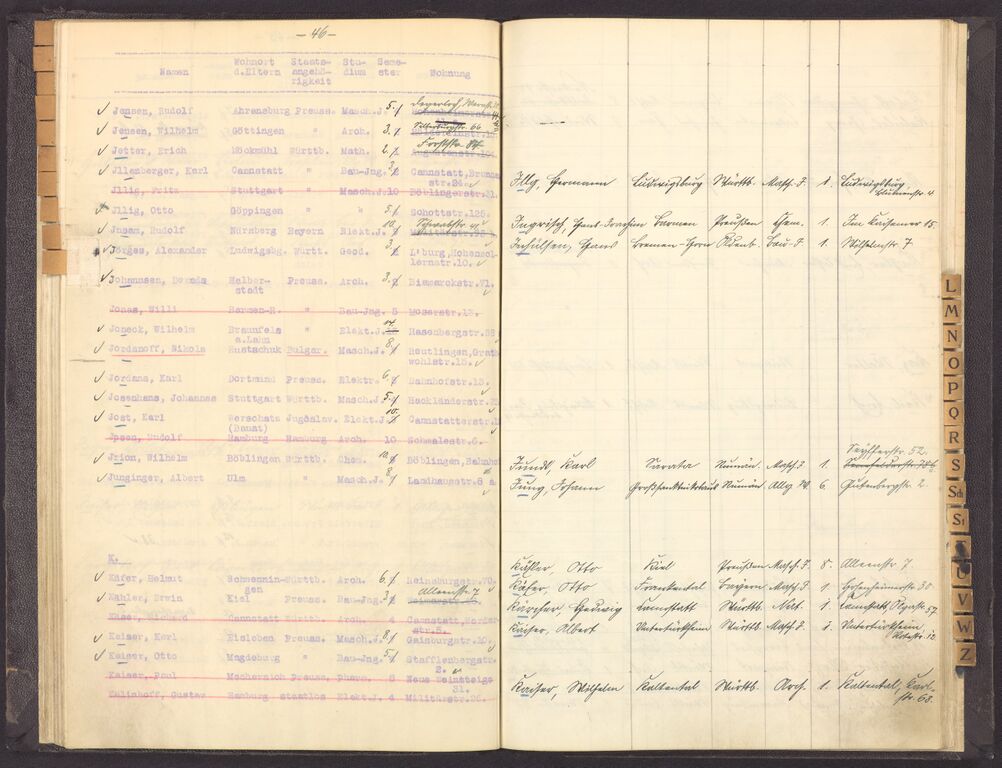 - 46 -
Namen Wohnort d.Eltern Staats-angehö-rigkeit Stu-dium Seme-ster Wohnung
Jensen, Rudolf Ahrensburg Preuss. Masch.J. 5.
Jensen, Wilhelm Göttingen " Arch. 3. 66
Jetter, Erich Möckmühl Württb. Math. 2. Forststr.
Jllenberger, Karl Cannstatt " Bau-Jng. 3. Cannstatt, Brunnen
str.24.
Jllig, Fritz Stuttgart " Masch.J. 10 Böblingerstr.31.
Jllig, Otto Göppingen " " 5. Schottstr.125.
Jnsam, Rudolf Nürnberg Bayern Elekt.J. 10. Schwabstr.
Jörges, Alexander Ludwigsbg. Württ. Geod. 3. L'burg, Hohenzol-
lernstr.10.
Johannsen, Halber- Preuss. Arch. 3. Bismarckstr.71.
stadt
Jonas, Willi Barmen-R. " Bau-Jng. 8 Moserstr.12.
Joneck, Wilhelm Braunfels " Elekt.J. Hasenbergstr.
a.Lahn
Jordanoff, Nikola Rustschuk Bulgar. Masch.J. 8. Reutlingen, Grat-
wohlstr.15.
Jordans, Karl Dortmund Preuss. Elektr. 6. Bahnhofstr.13.
Josenhans, Johannes Stuttgart Württb. Masch.J. 5. Hackländerstr.
Jost, Karl Werschatz Jugoslav. Elekt.J. 10. Cannstatterstr.
(Banat)
Ipsen, Rudolf Hamburg Hamburg Arch. 10 Schmalestr.6.
Jrion, Wilhelm Böblingen Württb. Chem. 10. Böblingen, Bahnhof
Junginger, Albert Ulm " Masch.J. 8. Landhausstr.8 a
K.
Käfer, Helmut Schwennin- Württb. Arch. 6. Reinsburgstr.70.
gen
Kähler, Erwin Kiel Preuss. Bau-Jng. 3. Alleenstr. 7
Käser, Richard Cannstatt Württb. Arch. 4 Cannstatt,
Kaiser, Karl Eisleben Preuss. Masch.J. 8. Gaisburgstr.20.
Kaiser, Otto Magdeburg " Bau-Jng. 5. Stafflenbergstr.
2.
Kaiser, Paul Mechernich Preuss. Pharm. 6 Neue Weinsteige
31.
Kalinhoff, Gustav Hamburg staatlos Elekt.J. 4 Militärstr.26.
Illg, Hermann Ludwigsburg Württb. Masch.J. 1. Ludwigsburg,
Blumenstr. 4
Ingrisch, Hans Joachim Barmen Preußen Chem. 1 Im Kaisemer 15
Inhülsen, Hans Bremen-Horn Bau-I 1 Wilhelmstr. 7
52.
Jundt, Karl Sarata Rumän. Masch.J. 1.
Jung, Johann Großsanktnikolaus Rumän. Allg. W. 6. Gutenbergstr. 2.
Kähler, Otto Kiel Preußen Masch.J. 8. Alleenstr. 7
Käfer, Otto Frankental Bayern Masch.J. 1. Hohenheimerstr. 30
Kärcher, Hedwig Cannstatt Württb. Nat. 1. Cannstatt, Olgastr. 57
Kaiser, Albert Untertürkheim Württb. Masch.J. 1. Untertürkheim,
12
Kaiser, Wilhelm Kaltental Württb. Arch. 1. Kaltental, Karl-
str. 63.
L
M
N
O
P
Q
R
S
Sch
St
T
U
V
W
Z